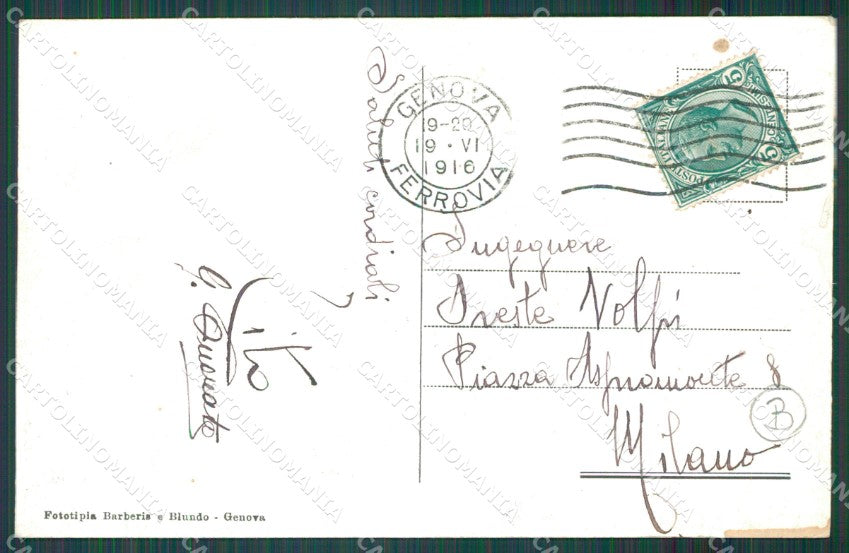 Saluti cordiali
Tito
G. Onorato
GENOVA
19-20
19 · VI
1916
FERROVIA
POSTE ITALIANE
5 5
Ingegnere
Oreste Volpi
Piazza Aspromonte 8
Milano
B
Fototipia Barberis e Blundo - Genova
CARTOLINOMANIA